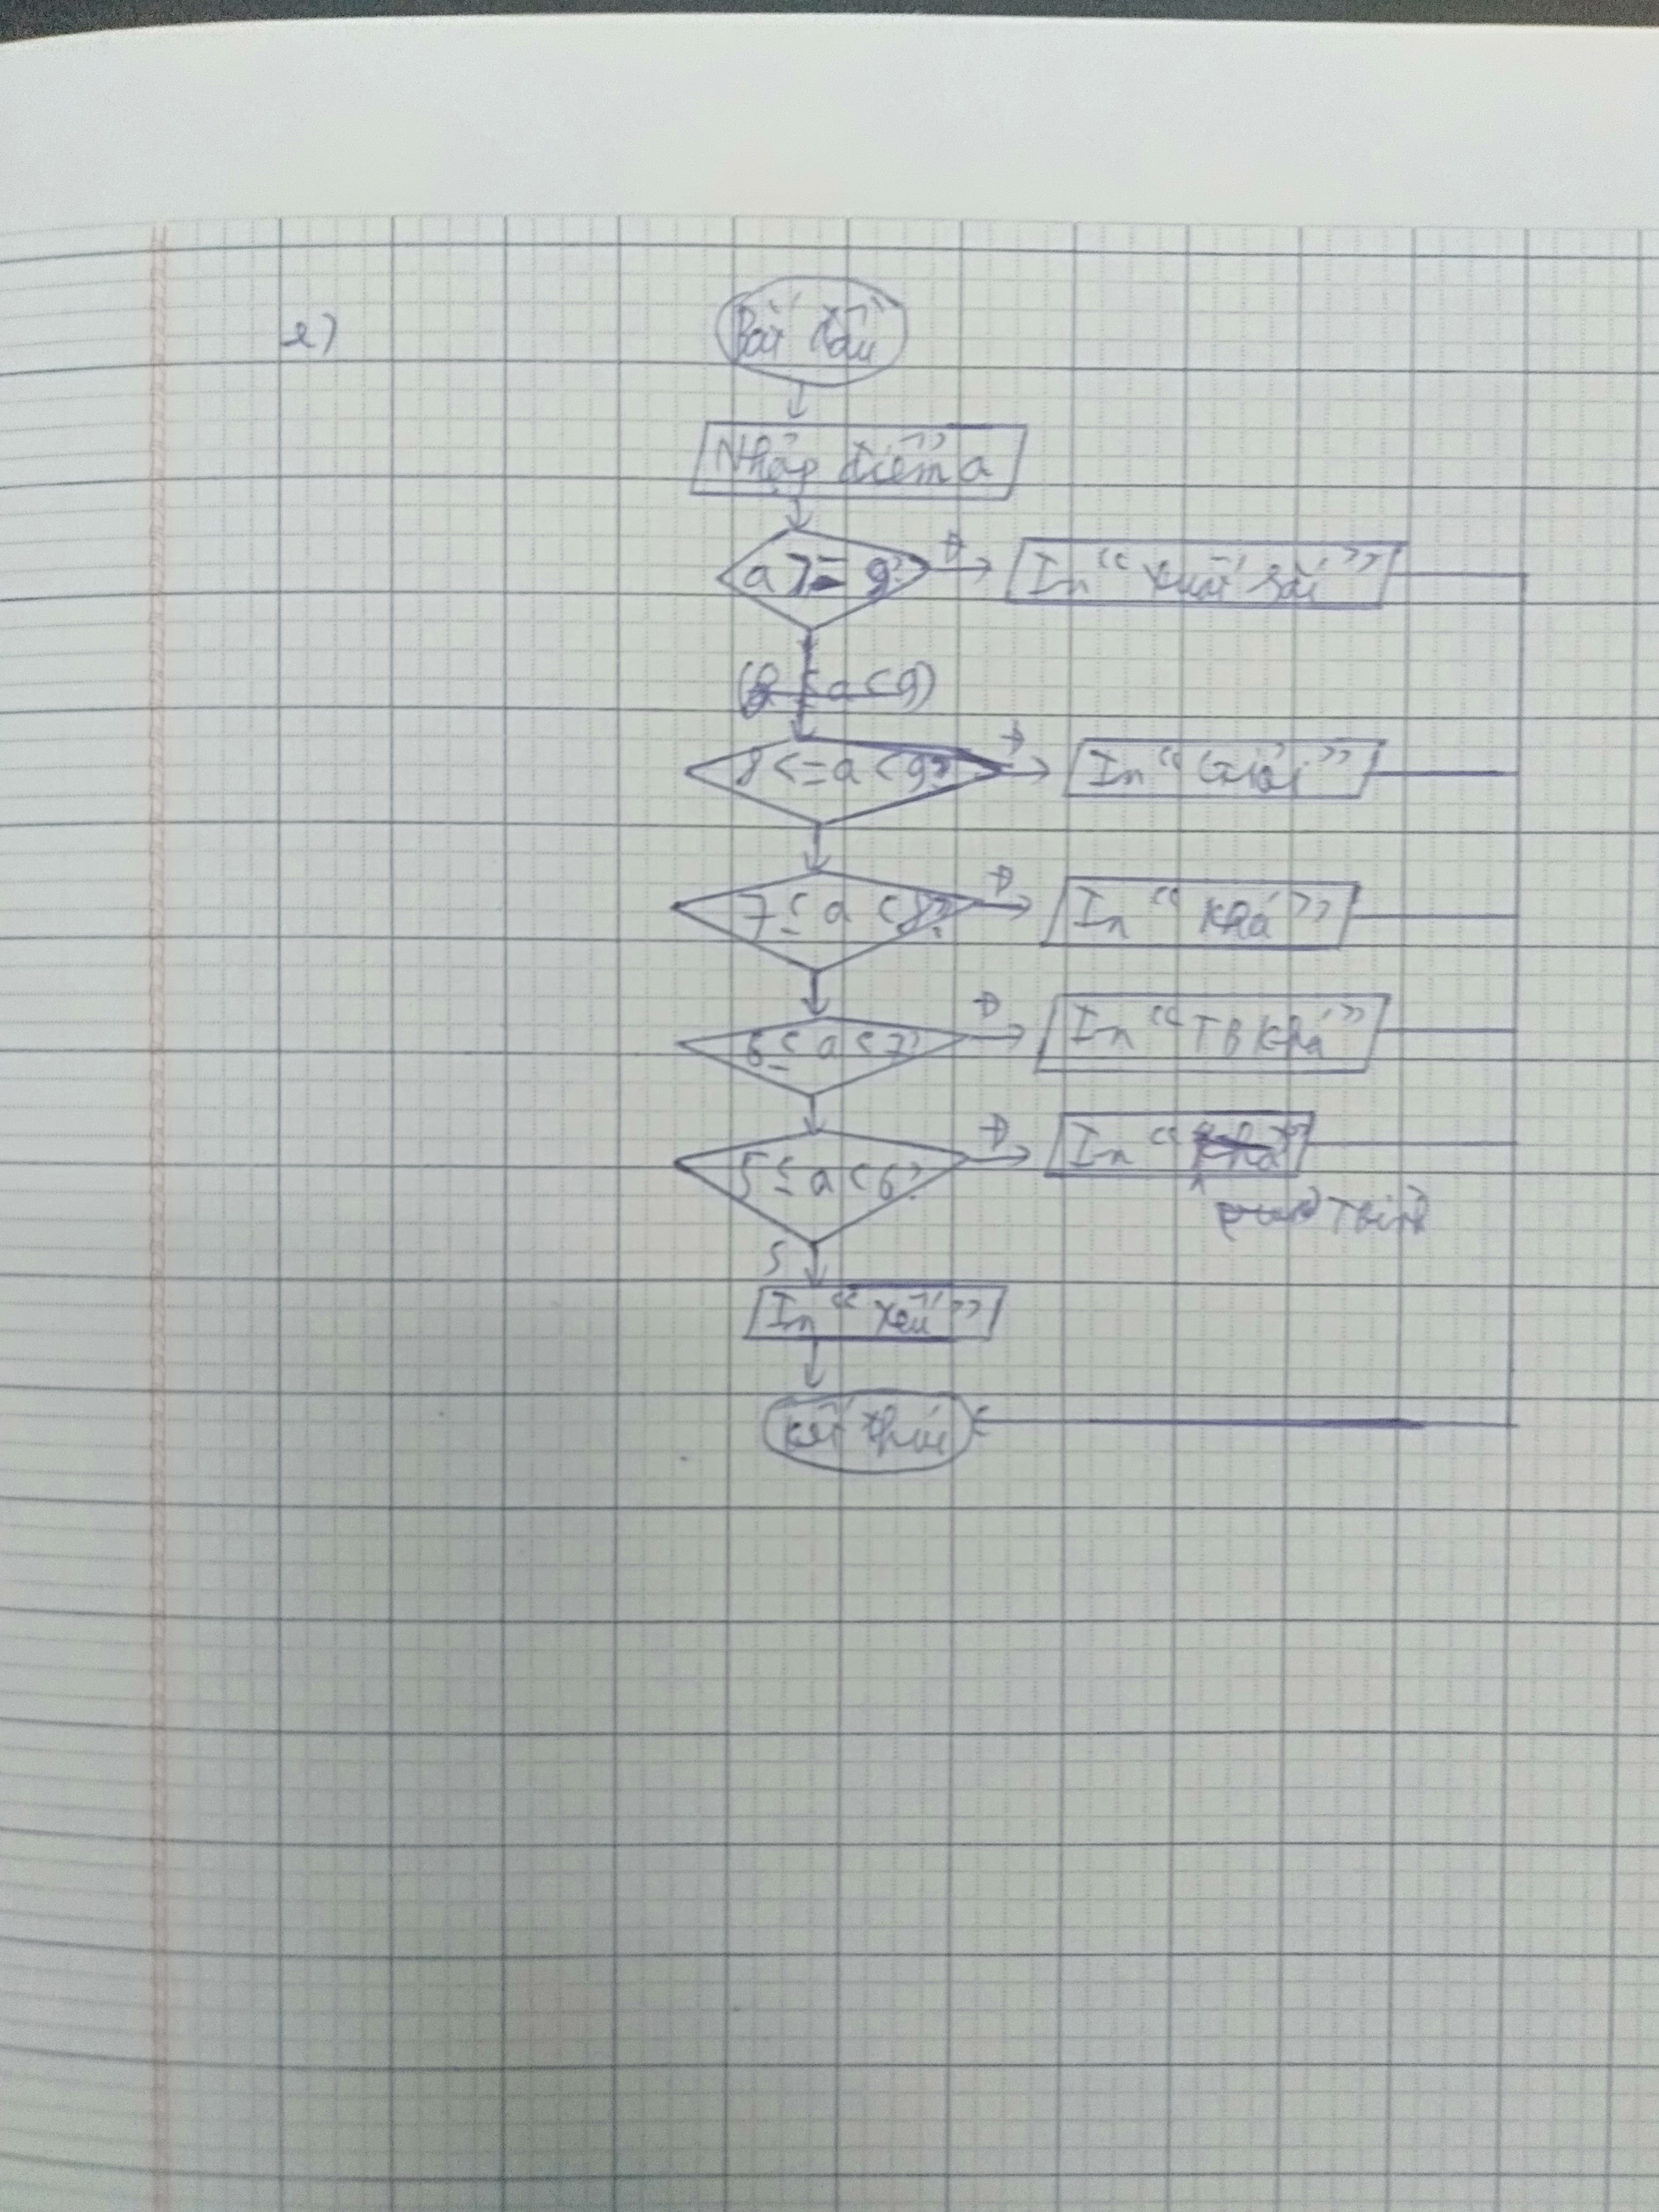 2)
Bắt đầu
Nhập điểm a
a >= 9?
Đ
In "Xuất sắc"
(8 ≤ a < 9)
8 <= a < 9?
Đ
In "Giỏi"
7 ≤ a < 8?
Đ
In "Khá"
6 ≤ a < 7?
Đ
In "TB Khá"
5 ≤ a < 6?
Đ
In "Khá"
TBình
S
In "Yếu"
Kết thúc